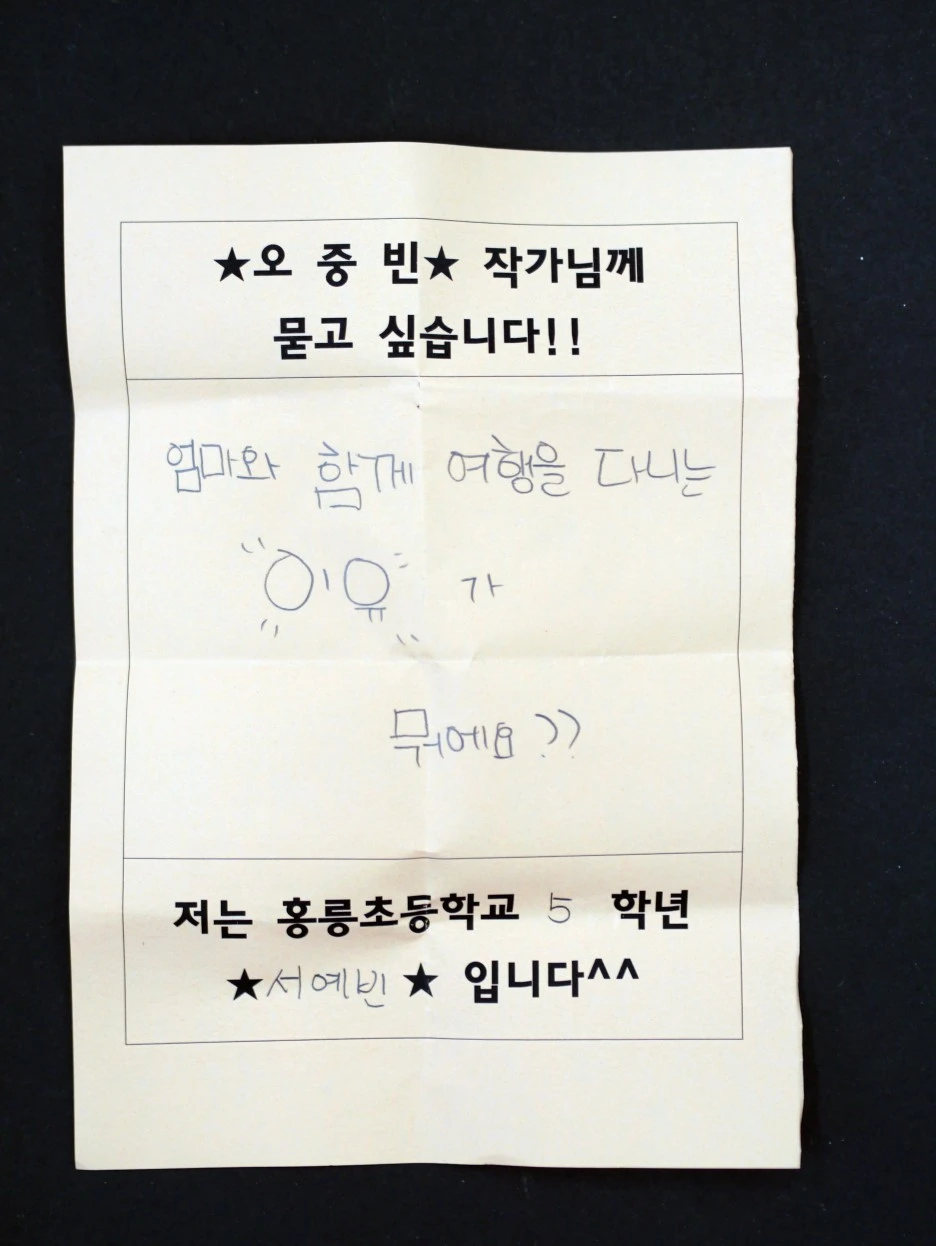 ★오 중 빈★ 작가님께
묻고 싶습니다!!
엄마와 함께 여행을 다니는
이유 가
뭐에요??
저는 홍릉초등학교 5 학년
★서예빈★ 입니다^^